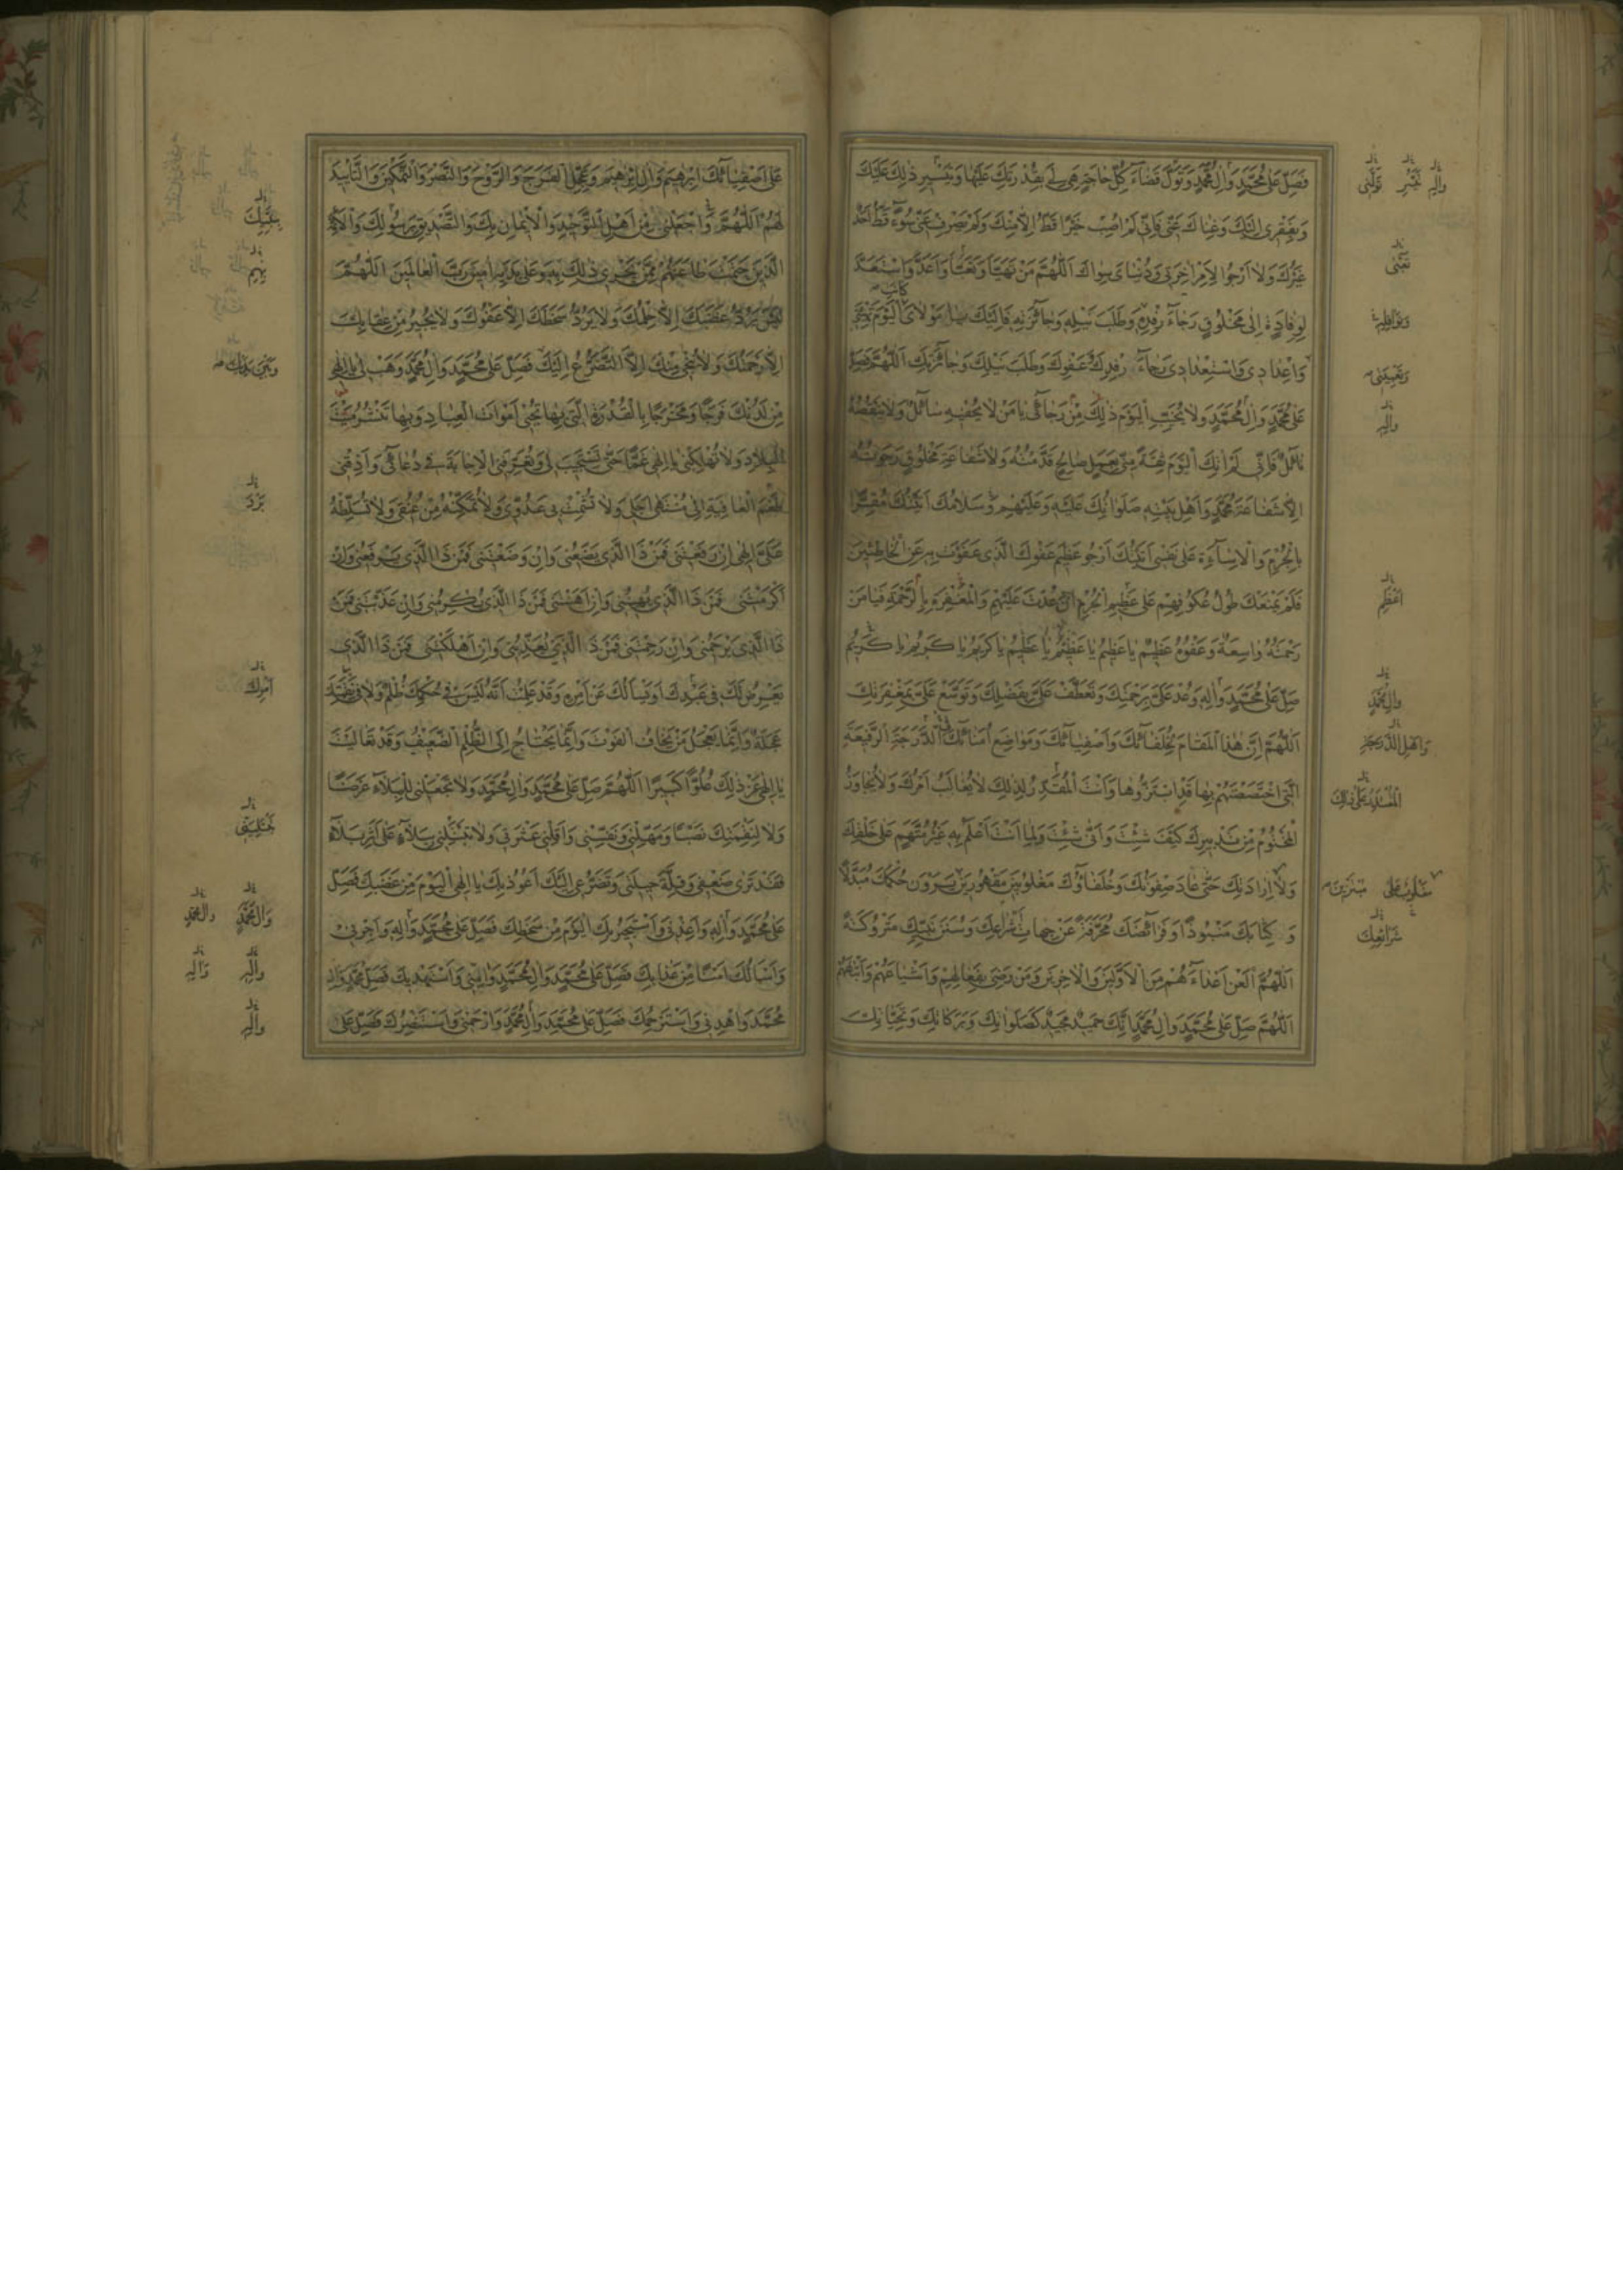 فَصَلِّ عَلىٰ مُحَمَّدٍ وَاٰلِ مُحَمَّدٍ وَتَوَلَّ قَضَآءَ كُلِّ حَاجَةٍ هِىَ لِى بِقُدْرَتِكَ عَلَيْهَا وَتَيْسِيرِ ذٰلِكَ عَلَيْكَ
وَبِفَقْرِى اِلَيْكَ وَغِنَاكَ عَنِّى فَاِنِّى لَمْ اُصِبْ خَيْرًا قَطُّ اِلَّا مِنْكَ وَلَمْ يَصْرِفْ عَنِّى سُوٓءً قَطُّ اَحَدٌ
غَيْرُكَ وَلَا اَرْجُوا لِاَمْرِ اٰخِرَتِى وَدُنْيَاىَ سِوَاكَ اَللّٰهُمَّ مَنْ تَهَيَّاَ وَتَعَبَّاَ وَاَعَدَّ وَاسْتَعَدَّ
لِوِفَادَةٍ اِلىٰ مَخْلُوقٍ رَجَآءَ رِفْدِهِ وَطَلَبَ نَيْلِهِ وَجَآئِزَتِهِ فَاِلَيْكَ يَا مَوْلَاىَ الْيَوْمَ تَهْيِئَتِى
وَاِعْدَادِى وَاسْتِعْدَادِى رَجَآءَ رِفْدِكَ عَفْوِكَ وَطَلَبَ نَيْلِكَ وَجَآئِزَتِكَ اَللّٰهُمَّ فَصَلِّ
عَلىٰ مُحَمَّدٍ وَاٰلِ مُحَمَّدٍ وَلَا تُخَيِّبِ الْيَوْمَ ذٰلِكَ مِنْ رَجَآئِى يَا مَنْ لَا يُحْفِيهِ سَآئِلٌ وَلَا يَنْقُصُهُ
نَآئِلٌ فَاِنِّى لَمْ اٰتِكَ الْيَوْمَ ثِقَةً مِنِّى بِعَمَلٍ صَالِحٍ قَدَّمْتُهُ وَلَا شَفَاعَةِ مَخْلُوقٍ رَجَوْتُهُ
اِلَّا شَفَاعَةَ مُحَمَّدٍ وَاَهْلِ بَيْتِهِ صَلَوَاتُكَ عَلَيْهِ وَعَلَيْهِمْ وَسَلَامُكَ اَتَيْتُكَ مُقِرًّا
بِالْجُرْمِ وَالْاِسَآءَةِ عَلىٰ نَفْسِى اَتَيْتُكَ اَرْجُو عَظِيمَ عَفْوِكَ الَّذِى عَفَوْتَ بِهِ عَنِ الْخَاطِئِينَ
فَلَمْ يَمْنَعْكَ طُولُ عُكُوفِهِمْ عَلىٰ عَظِيمِ الْجُرْمِ اَنْ عُدْتَ عَلَيْهِمْ وَالْمَغْفِرَةِ بِالرَّحْمَةِ فَيَا مَنْ
رَحْمَتُهُ وَاسِعَةٌ وَعَفْوُهُ عَظِيمٌ يَا عَظِيمُ يَا عَظِيمُ يَا عَظِيمُ يَا كَرِيمُ يَا كَرِيمُ يَا كَرِيمُ
صَلِّ عَلىٰ مُحَمَّدٍ وَاٰلِهِ وَعُدْ عَلَىَّ بِرَحْمَتِكَ وَتَعَطَّفْ عَلَىَّ بِفَضْلِكَ وَتَوَسَّعْ عَلَىَّ بِمَغْفِرَتِكَ
اَللّٰهُمَّ اِنَّ هٰذَا الْمَقَامَ لِخُلَفَآئِكَ وَاَصْفِيَآئِكَ وَمَوَاضِعَ اُمَنَآئِكَ فِى الدَّرَجَةِ الرَّفِيعَةِ
الَّتِى اخْتَصَصْتَهُمْ بِهَا قَدِ ابْتَزُّوهَا وَاَنْتَ الْمُقَدِّرُ لِذٰلِكَ لَا يُغَالَبُ اَمْرُكَ وَلَا يُجَاوَزُ
الْمَحْتُومُ مِنْ تَدْبِيرِكَ كَيْفَ شِئْتَ وَاَنّٰى شِئْتَ وَلِمَا اَنْتَ اَعْلَمُ بِهِ غَيْرُ مُتَّهَمٍ عَلىٰ خَلْقِكَ
وَلَا اِرَادَتِكَ حَتّٰى عَادَ صِفْوَتُكَ وَخُلَفَآؤُكَ مَغْلُوبِينَ مَقْهُورِينَ يَرَوْنَ حُكْمَكَ مُبَدَّلًا
وَكِتَابَكَ مَنْبُوذًا وَفَرَآئِضَكَ مُحَرَّفَةً عَنْ جِهَاتِ شَرَايِعِكَ وَسُنَنَ نَبِيِّكَ مَتْرُوكَةً
اَللّٰهُمَّ الْعَنْ اَعْدَآءَهُمْ مِنَ الْاَوَّلِينَ وَالْاٰخِرِينَ وَمَنْ رَضِىَ بِفِعَالِهِمْ وَاَشْيَاعَهُمْ وَاَتْبَاعَهُمْ
اَللّٰهُمَّ صَلِّ عَلىٰ مُحَمَّدٍ وَاٰلِ مُحَمَّدٍ اِنَّكَ حَمِيدٌ مَجِيدٌ كَصَلَوَاتِكَ وَبَرَكَاتِكَ وَتَحِيَّاتِكَ
وَاٰلِهِ
تَوَلَّنِى
وَنَوَافِلِهِ
وَتَعْبِيَتِى
وَاٰلِهِ
وَاٰلِ مُحَمَّدٍ
شَرَائِعِكَ
عَلىٰ اَصْفِيَآئِكَ اِبْرٰهِيمَ وَاٰلِ اِبْرٰهِيمَ وَعَجِّلِ الْفَرَجَ وَالرَّوْحَ وَالنَّصْرَ وَالتَّمْكِينَ وَالتَّاْيِيدَ
لَهُمْ اَللّٰهُمَّ وَاجْعَلْنِى مِنْ اَهْلِ التَّوْحِيدِ وَالْاِيمَانِ بِكَ وَالتَّصْدِيقِ بِرَسُولِكَ وَالْاَئِمَّةِ
الَّذِينَ حَتَمْتَ طَاعَتَهُمْ مِمَّنْ يَجْرِى ذٰلِكَ بِهِ وَعَلىٰ يَدَيْهِ اٰمِينَ رَبَّ الْعَالَمِينَ اَللّٰهُمَّ
لَيْسَ يَرُدُّ غَضَبَكَ اِلَّا حِلْمُكَ وَلَا يَرُدُّ سَخَطَكَ اِلَّا عَفْوُكَ وَلَا يُجِيرُ مِنْ عِقَابِكَ
اِلَّا رَحْمَتُكَ وَلَا يُنْجِى مِنْكَ اِلَّا التَّضَرُّعُ اِلَيْكَ فَصَلِّ عَلىٰ مُحَمَّدٍ وَاٰلِ مُحَمَّدٍ وَهَبْ لِى يَا اِلٰهِى
مِنْ لَدُنْكَ فَرَجًا وَمَخْرَجًا بِالْقُدْرَةِ الَّتِى بِهَا تُحْيِى اَمْوَاتَ الْعِبَادِ وَبِهَا تَنْشُرُ مَيْتَ
الْبِلَادِ وَلَا تُهْلِكْنِى يَا اِلٰهِى غَمًّا حَتّٰى تَسْتَجِيبَ لِى وَتُعَرِّفَنِى الْاِجَابَةَ فِى دُعَآئِى وَاَذِقْنِى
طَعْمَ الْعَافِيَةِ اِلىٰ مُنْتَهىٰ اَجَلِى وَلَا تُشْمِتْ بِى عَدُوِّى وَلَا تُمَكِّنْهُ مِنْ عُنُقِى وَلَا تُسَلِّطْهُ
عَلَىَّ اِلٰهِى اِنْ رَفَعْتَنِى فَمَنْ ذَا الَّذِى يَضَعُنِى وَاِنْ وَضَعْتَنِى فَمَنْ ذَا الَّذِى يَرْفَعُنِى وَاِنْ
اَكْرَمْتَنِى فَمَنْ ذَا الَّذِى يُهِينُنِى وَاِنْ اَهَنْتَنِى فَمَنْ ذَا الَّذِى يُكْرِمُنِى وَاِنْ عَذَّبْتَنِى فَمَنْ
ذَا الَّذِى يَرْحَمُنِى وَاِنْ رَحِمْتَنِى فَمَنْ ذَا الَّذِى يُعَذِّبُنِى وَاِنْ اَهْلَكْتَنِى فَمَنْ ذَا الَّذِى
يَعْرِضُ لَكَ فِى عَبْدِكَ اَوْ يَسْاَلُكَ عَنْ اَمْرِهِ وَقَدْ عَلِمْتُ اَنَّهُ لَيْسَ فِى حُكْمِكَ ظُلْمٌ وَلَا فِى نَقِمَتِكَ
عَجَلَةٌ وَاِنَّمَا يَعْجَلُ مَنْ يَخَافُ الْفَوْتَ وَاِنَّمَا يَحْتَاجُ اِلَى الظُّلْمِ الضَّعِيفُ وَقَدْ تَعَالَيْتَ
يَا اِلٰهِى عَنْ ذٰلِكَ عُلُوًّا كَبِيرًا اَللّٰهُمَّ صَلِّ عَلىٰ مُحَمَّدٍ وَاٰلِ مُحَمَّدٍ وَلَا تَجْعَلْنِى لِلْبَلَآءِ غَرَضًا
وَلَا لِنَقِمَتِكَ نَصَبًا وَمَهِّلْنِى وَنَفِّسْنِى وَاَقِلْنِى عَثْرَتِى وَلَا تَبْتَلِنِى بِبَلَآءٍ عَلىٰ اَثَرِ بَلَآءٍ
فَقَدْ تَرىٰ ضَعْفِى وَقِلَّةَ حِيلَتِى وَتَضَرُّعِى اِلَيْكَ اَعُوذُ بِكَ يَا اِلٰهِى الْيَوْمَ مِنْ غَضَبِكَ فَصَلِّ
عَلىٰ مُحَمَّدٍ وَاٰلِهِ وَاَعِذْنِى وَاَسْتَجِيرُ بِكَ الْيَوْمَ مِنْ سَخَطِكَ فَصَلِّ عَلىٰ مُحَمَّدٍ وَاٰلِهِ وَاَجِرْنِى
وَاَسْاَلُكَ اَمْنًا مِنْ عَذَابِكَ فَصَلِّ عَلىٰ مُحَمَّدٍ وَاٰلِ مُحَمَّدٍ وَاٰمِنِّى وَاَسْتَهْدِيكَ فَصَلِّ عَلىٰ مُحَمَّدٍ وَاٰلِ
مُحَمَّدٍ وَاهْدِنِى وَاَسْتَرْحِمُكَ فَصَلِّ عَلىٰ مُحَمَّدٍ وَاٰلِ مُحَمَّدٍ وَارْحَمْنِى وَاَسْتَنْصِرُكَ فَصَلِّ عَلىٰ
اَمْرِكَ
وَاٰلِ مُحَمَّدٍ
وَاٰلِ مُحَمَّدٍ
وَاٰلِهِ
وَاٰلِهِ
وَاٰلِهِ